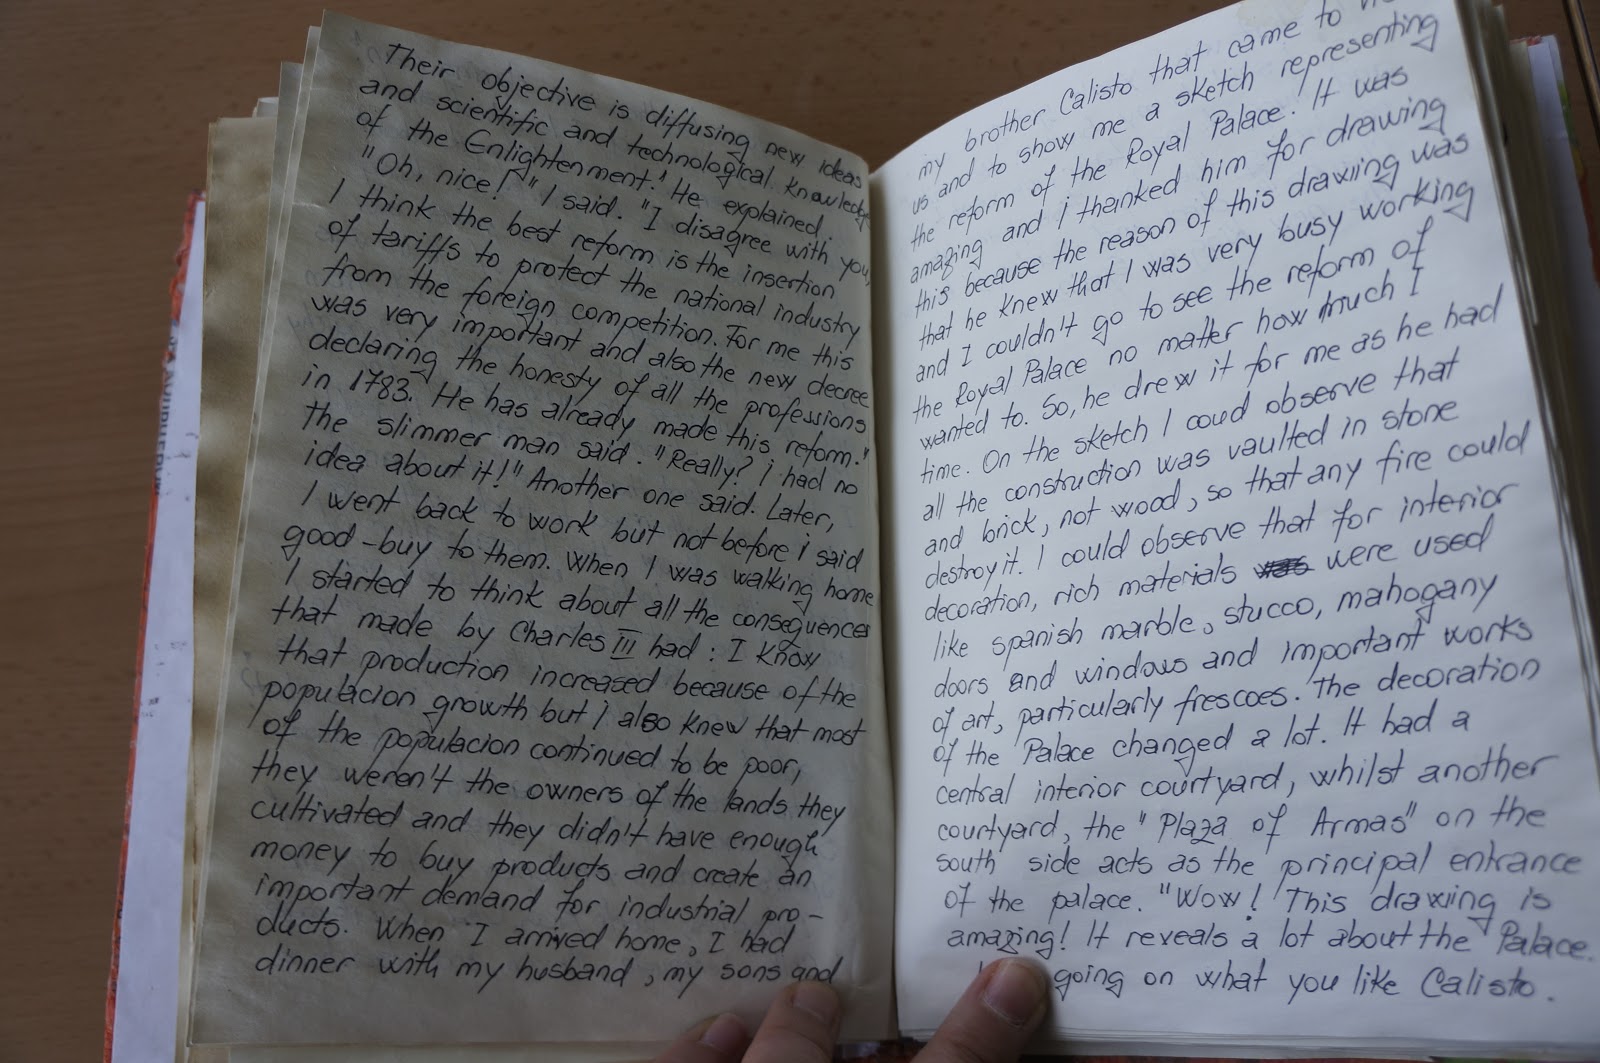 Their objective is diffusing new ideas
and scientific and technological knowledge
of the Enlightenment." He explained.
"Oh, nice!" I said. "I disagree with you,
I think the best reform is the insertion
of tariffs to protect the national industry
from the foreign competition. For me this
was very important and also the new decree
declaring the honesty of all the professions
in 1783. He has already made this reform."
the slimmer man said. "Really? i had no
idea about it!" Another one said. Later,
I went back to work but not before i said
good-buy to them. When I was walking home
I started to think about all the consequences
that made by Charles III had: I know
that production increased because of the
populacion growth but i also knew that most
of the populacion continued to be poor,
they weren't the owners of the lands they
cultivated and they didn't have enough
money to buy products and create an
important demand for industrial pro-
ducts. When I arrived home, I had
dinner with my husband, my sons and
my brother Calisto that came to
us and to show me a sketch representing
the reform of the Royal Palace. It was
amazing and i thanked him for drawing
this because the reason of this drawing was
that he knew that I was very busy working
and I couldn't go to see the reform of
the Royal Palace no matter how much I
wanted to. So, he drew it for me as he had
time. On the sketch I coud observe that
all the construction was vaulted in stone
and brick, not wood, so that any fire could
destroy it. I could observe that for interior
decoration, rich materials were used
like spanish marble, stucco, mahogany
doors and windows and important works
of art, particularly frescoes. The decoration
of the Palace changed a lot. It had a
central interior courtyard, whilst another
courtyard, the "Plaza of Armas" on the
south side acts as the principal entrance
of the palace. "Wow! This drawing is
amazing! It reveals a lot about the Palace.
going on what you like Calisto.